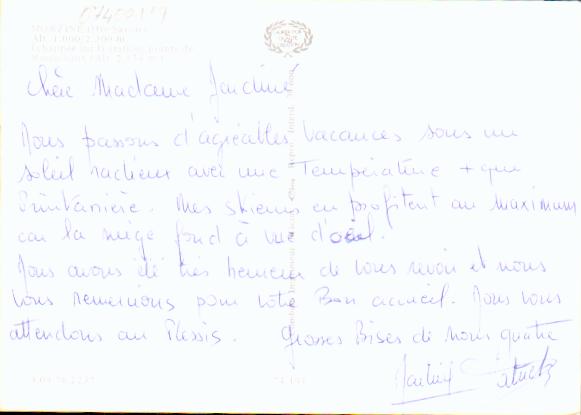 07400119
MORZINE (Hte-Savoie)
Alt. 1.000/2.300 m
Chère Madame Jardiné
Nous passons d'agréables vacances sous un
soleil radieux avec une Température + que
Printanière. Mes skieurs en profitent au maximum
car la neige fond à vue d'œil.
Nous avons été très heureux de vous revoir et nous
vous remercions pour votre Bon accueil. Nous vous
attendons au Plessis. Grosses Bises de nous quatre